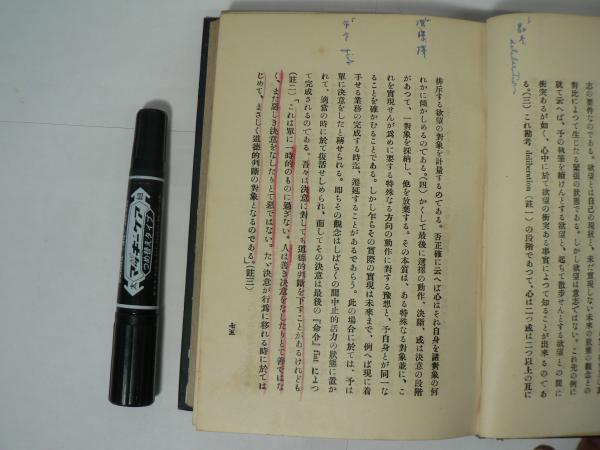 志の要件なのである。欲望とは自己の現狀と、未だ實現しない未來の狀態の觀念との
對比によつて生じたる緊張の狀態である。しかし欲望は意志ではない。これ先の例に
就て云へば、予の執筆を續けんとする欲望と、起ちて散步せんとする欲望との間に
衝突あるが如く、心中に於て欲望の衝突ある事實によつて知ることが出來るのであ
る。(三)これ勘考 deliberation(註一)の段階であつて、心は二つ或は二つ以上の互に
排斥する欲望の對象を計量するのである。否正確に云へば心はそれ自身を諸對象の何
れかに傾かしめるのである。(四)かくして最後に選擇の動作、決斷、或は決意の段階
があつて、一對象を採納し、他を放棄する。その本質は、ある特殊なる對象並に、こ
れを實現せんが爲めに要する特殊なる方向の動作に對する豫想と、予自身とが同一な
ることを確かむることである。しかし乍らその實際の實現は未來まで、例へば現に着
手せる業務の完成する時迄、遷延することがあるであらう。此の場合に於ては、予は
單に決意をしたと稱せられる。卽ちその觀念はしばらくの間中止的活力の狀態に置か
れて、適當の時に於て復活せしめられ、而してその決意は最後の『命令』fiat によつ
て完成されるのである。吾々は決意に對しても道德的判斷を下すことがあるけれども
(註二)、これは單に一時的のものに過ぎない。人は善き決意をなしたりとて善ではな
く、また惡しき決意をなしたりとて惡ではない。たゞ決意が行爲に移れる時に於ては
じめて、まさしく道德的判斷の對象となるのである。(註三)
七五
勘考
deliberation
マッキーケア
つめ替えタイプ